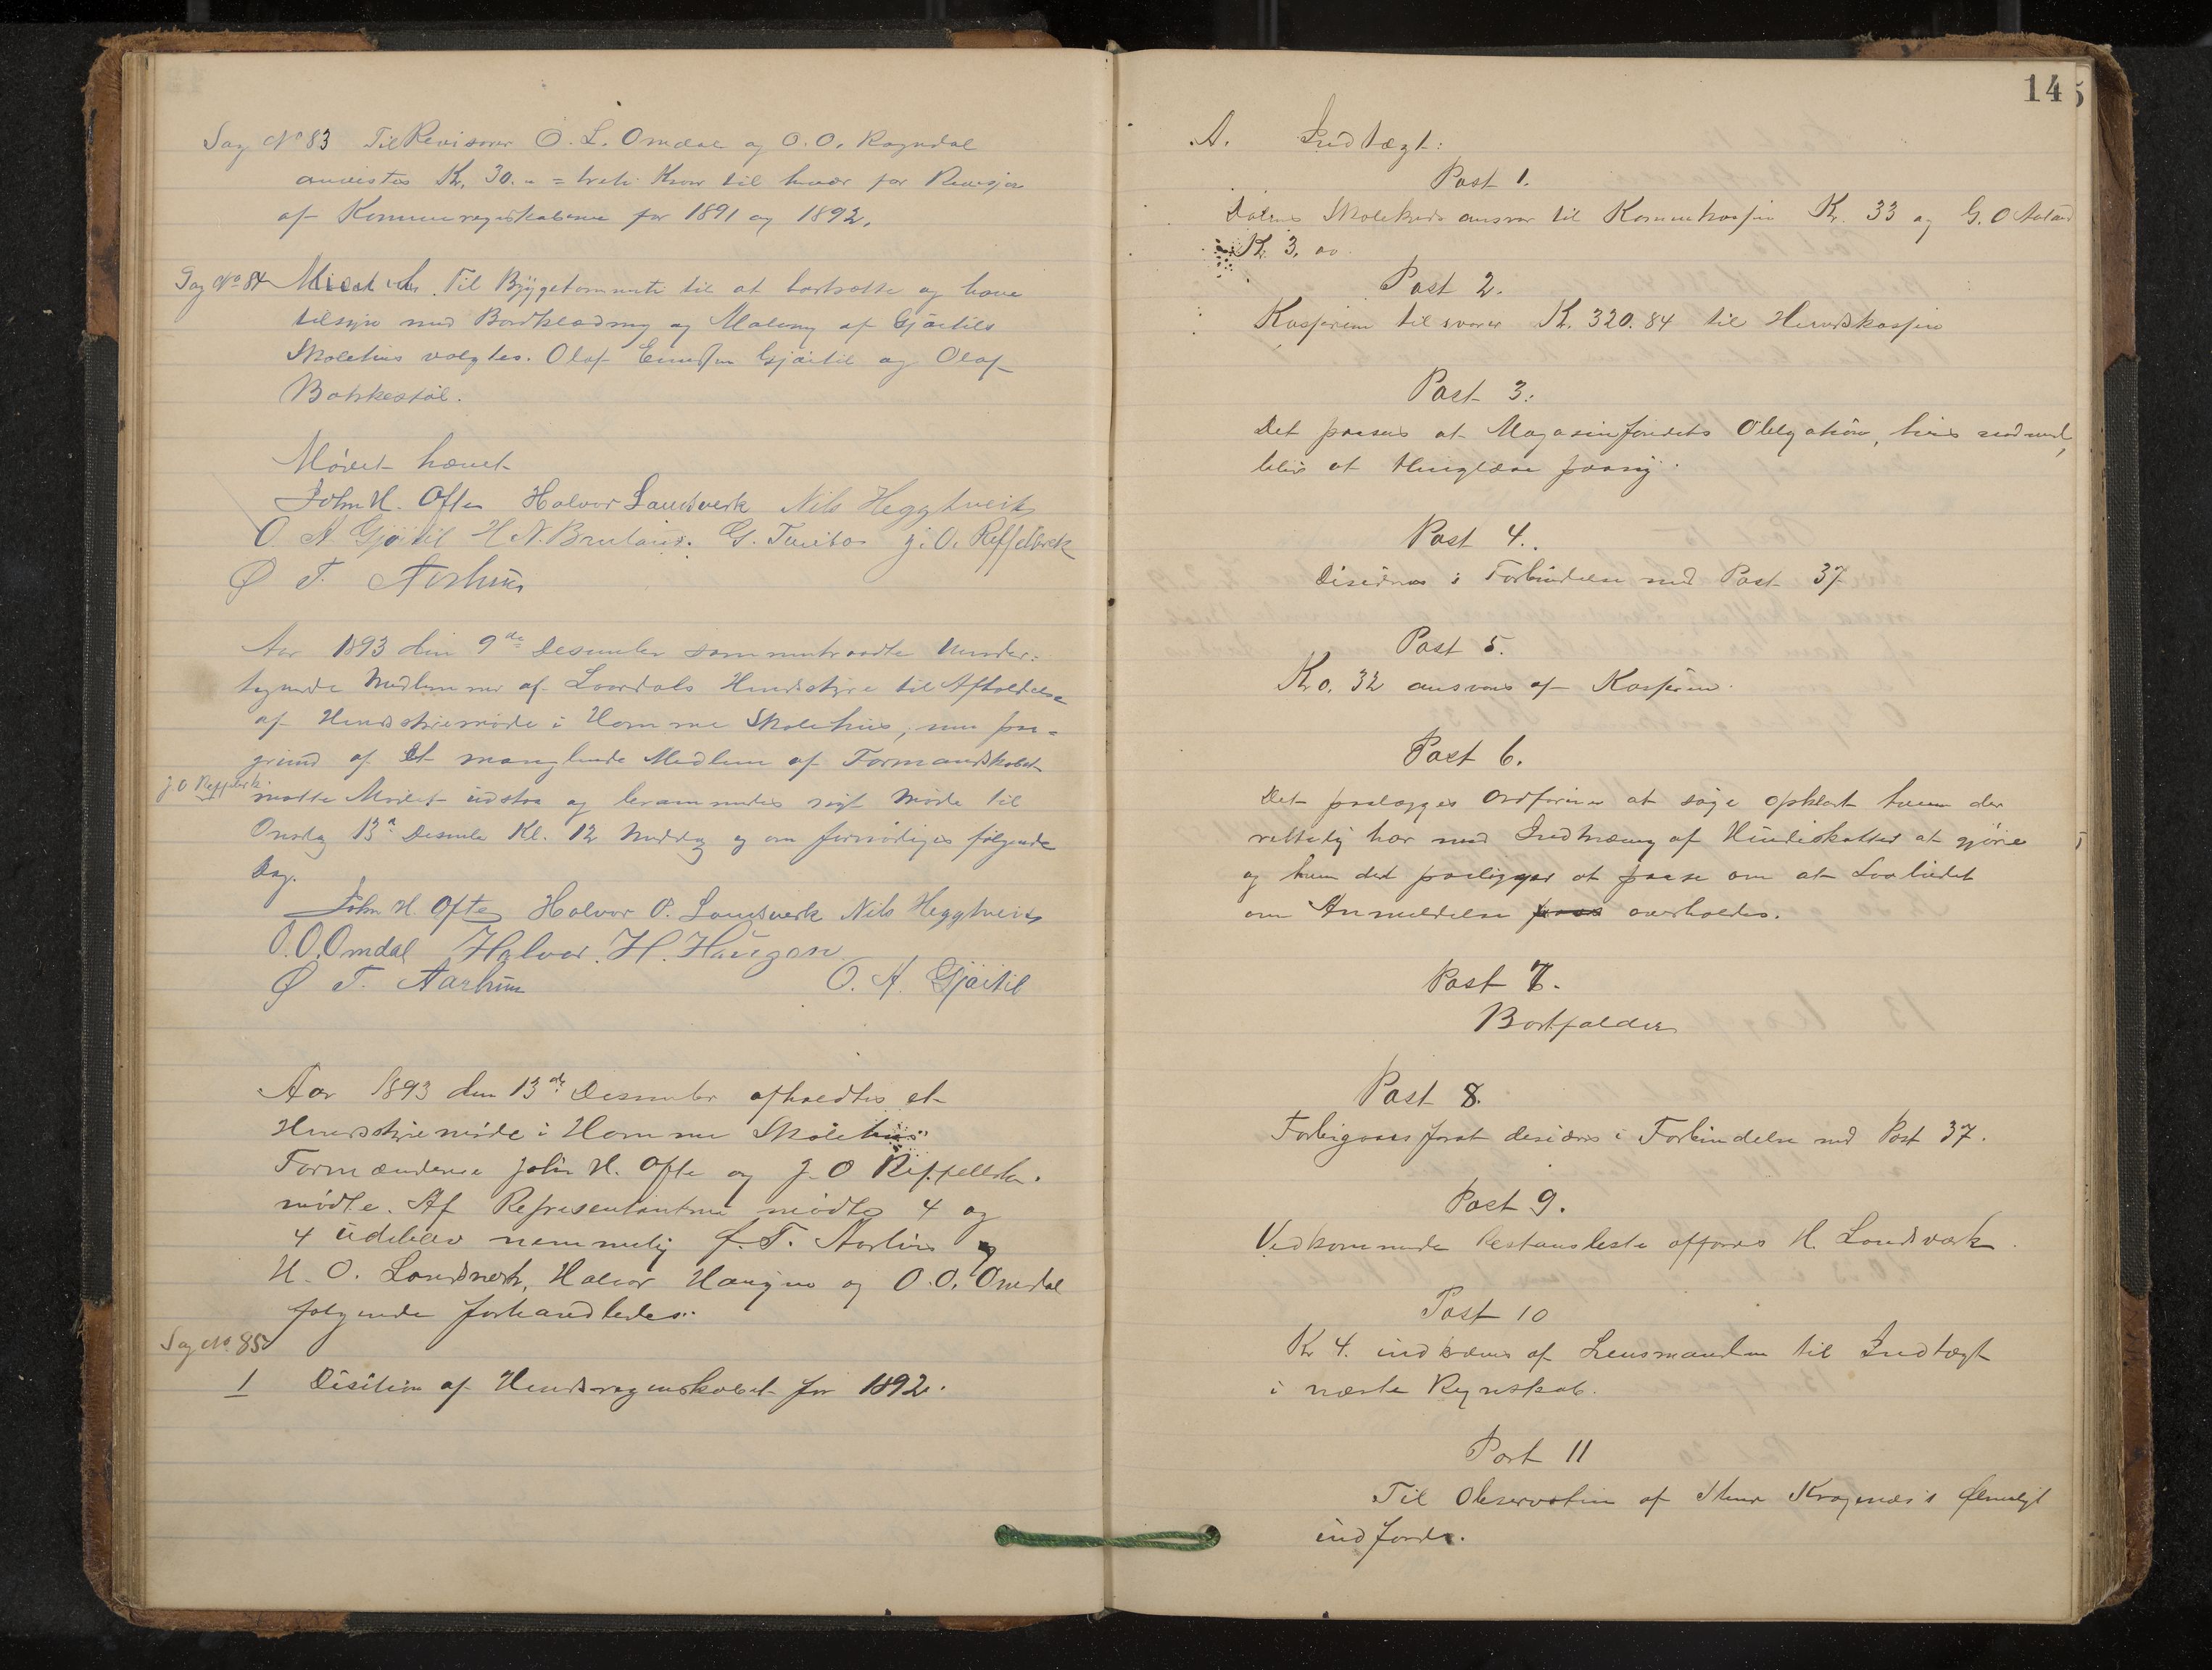 Sag No 83 Til Revisorer O. L. Omdal og O. O. Rogndal
anvistes Kr. 30.- = treti Kroner til hver for Revisjon
af Kommuneregnskaberne for 1891 og 1892.
Sag No 84 Til Byggekommite til at bortsætte og have
tilsyn med Bordklædning og Maling af Gjøitils
Skolehus valgtes. Olaf Gjøitil og Olaf
Bakkestøl.
Mødet hævet
John H. Ofte Halvor Landsverk Nils Heggtveit
O. A. Gjøitil H. N. Bruland. G. Tveito J. O. Reffelbrek
Ø T. Aarhus
Aar 1893 den 9de Desember sammentraadte Under-
tegnede Medlemmer af Laardals Herredstyre til Afholdelse
af Herredstyremøde i Homme Skolehus, men paa-
grund af et manglende Medlem af Formandskabet
J O Reffelbrek
maatte Mødet udstaa og berammedes nyt Møde til
Onsdag 13de Desember Kl. 12 Middag og om fornødiges følgende
Dag.
John H. Ofte Halvor O. Landsverk Nils Heggtveit
O. O. Omdal Halvor. H. Haugen
Ø T. Aarhus O. A. Gjøitil
Aar 1893 den 13de Desember afholdtes et
Herredstyremøde i Homme Skolehus
Formændene John H. Ofte og J. O Reffelbrek
mødte. Af Repræsentanterne mødte 4 og
4 udeblev nemmelig Ø. T. Aarhus og
H. O. Landsverk, Halvor Haugen og O. O. Omdal
følgende forhandledes:
Sag No 85
1 Desition af Herredsregnskabet for 1892.
14
A. Indtægt:
Post 1.
Dalens Skolekreds ansvar til Kommunekassen Kr. 33 og G. O Aaland
Kr. 3,00.
Post 2.
Kasseren tilsvarer Kr. 320.84 til Herredskassen
Post 3.
Det paasees at Magasinfondets Obligation,
blir at tinglæse paany.
Post 4.
Desideres i Forbindelse med Post 37
Post 5.
Kr 0.32 ansvares af Kasseren.
Post 6.
Det paalægges Ordføreren at søge opklart hvem der
rettelig har med Inddrivning af Hundeskatten at gjøre
og hvem det paaligger at paase om at Lovbudet
om Anmeldelse overholdes.
Post 7.
Bortfalder
Post 8.
Forbigaaes forat desideres i Forbindelse med Post 37.
Post 9.
Vedkommende Restanseliste opføres H. Landsverk.
Post 10
Kr 4. indkræves af Lensmanden til Indtægt
i næste Regnskab.
Post 11
Til Observation af
indføres.